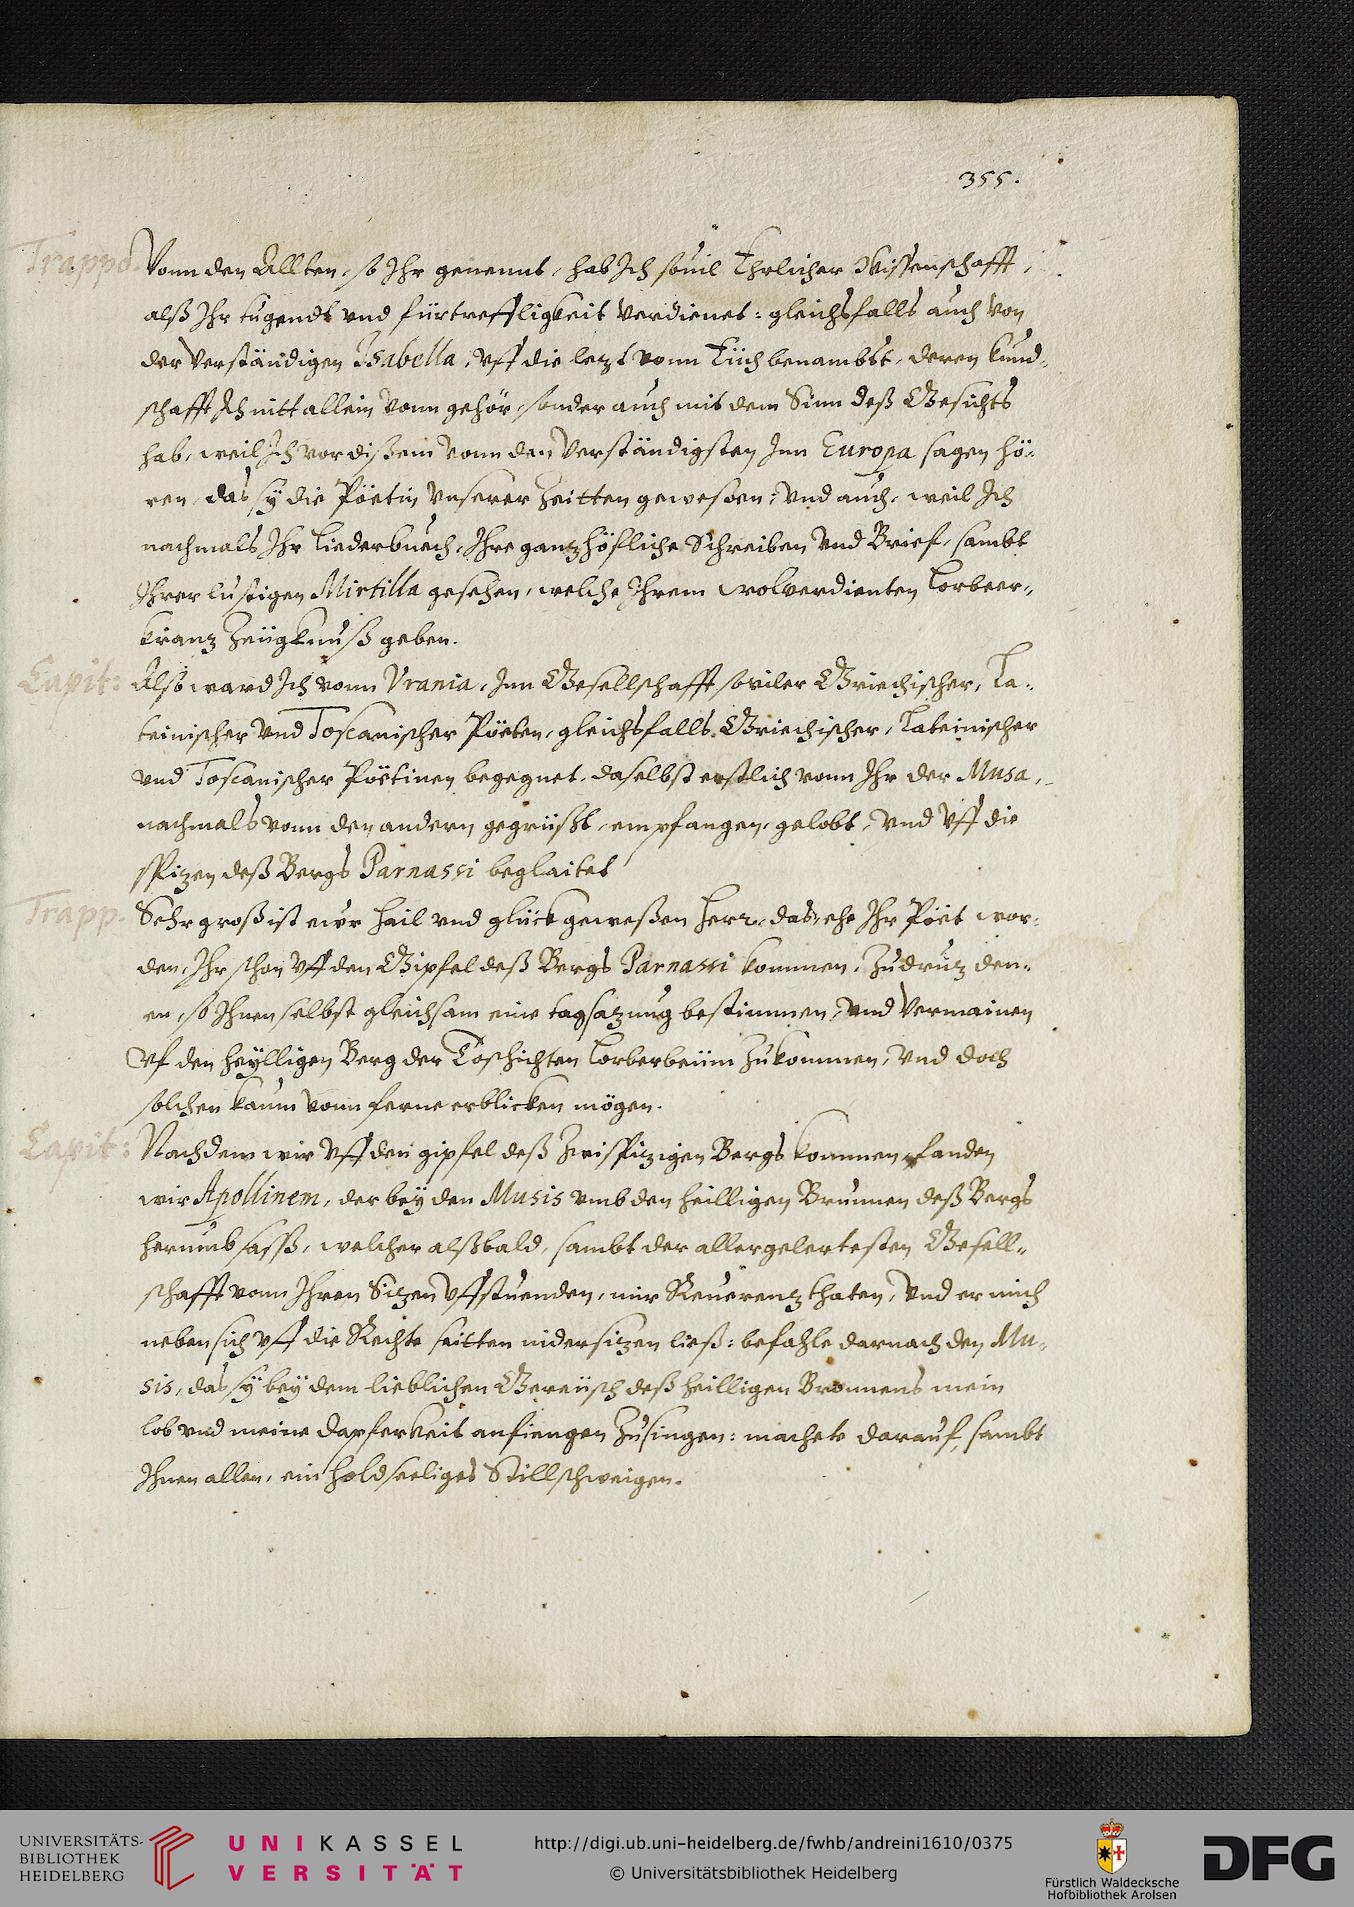 355.
Trappo. Vonn den Allten, so Ihr genennt, hab Ich souil Ehrlicher Wissenschafft,
alß Ihr tugendt vnd fürtreffligkeit verdienet: gleichsfalls auch von
der Verständigen Isabella, vff die lezt vonn Eüch benambst, deren kund-
schafft Ich nitt allein vonn gehör, sonder auch mit dem Sinn deß Gesichts
hab, weil Ich vor dißem vonn den Verständigsten Inn Europa sagen hö-
ren, das sÿ die Poëtin vnserer Zeitten gewesen, vnd auch, weil Ich
nachmals Ihr Liederbuech, Ihre gantz höfliche Schreiben vnd Brief, sambt
Ihrer lustigen Mirtilla gesehen, welche Ihrem wolverdienten Lorbeer-
kranz Zeügknuß geben.
Capit: Also ward Ich vonn Vrania, Inn Gesellschafft souiler Griechischer, La-
teinischer vnd Toscanischer Poëten, gleichsfalls Griechischer, Lateinischer
vnd Toscanischer Poëtinen begegnet, daselbst erstlich vonn Ihr der Musa,
nachmals vonn den andern gegrüßt, empfangen, gelobt, vnd vff die
spizen deß Bergs Parnassi beglaitet
Trapp. Sehr groß ist ewr hail vnd glück geweßen Herr, das, ehe Ihr Poët wor-
den, Ihr schon vff den Gipfel deß Bergs Parnassi kommen, Zu drutz den-
en, so Ihnen selbst gleichsam eine tagsazung bestimmen, vnd vermainen
vf den heÿlligen Berg der Lorberbeüm Zukommen, vnd doch
solchen kaum vonn ferne erblicken mögen.
Capit: Nachdem wir vff den gipfel deß Zwispizigen Bergs kommen, fanden
wir Apollinem, der beÿ den Musis vmb den heilligen Brunnen deß Bergs
herumb sasß, welcher alßbald, sambt der allergelertesten Gesell-
schafft vonn Ihren Sizen vffstuenden, mir Reuerentz thaten, vnd er mich
neben sich vff die Rechte seitten nidersitzen ließ: befahle darnach den Mu-
sis, das sÿ beÿ dem lieblichen Gereüsch deß heilligen Bronnens mein
lob vnd meine dapferkeit anfiengen Zusingen: machete darauf, sambt
Ihnen allen, ein holdseeliges Stillschweigen.
UNIVERSITÄTS-
BIBLIOTHEK
HEIDELBERG
UNIKASSEL
VERSITÄT
http://digi.ub.uni-heidelberg.de/fwhb/andreini1610/0375
© Universitätsbibliothek Heidelberg
Fürstlich Waldecksche
Hofbibliothek Arolsen
DFG